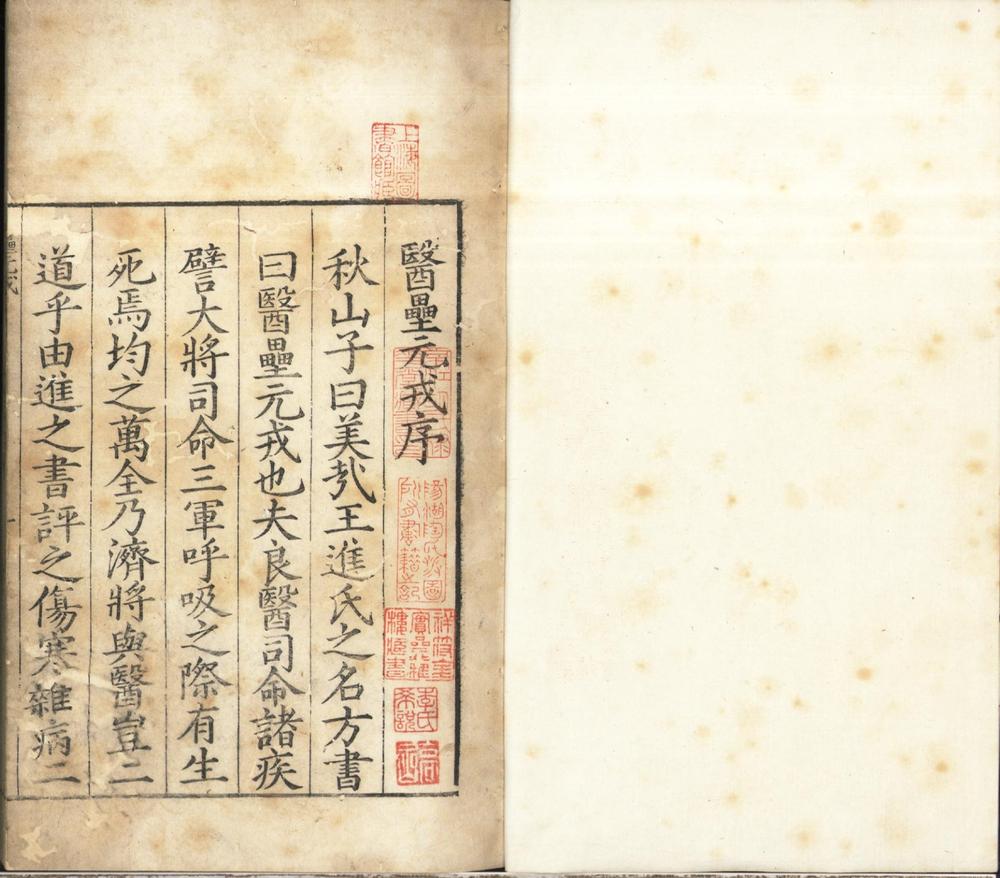 醫壘元戎序
秋山子曰美㢤王進氏之名方書
曰醫壘元戎也夫良醫司命諸疾
譬大將司命三軍呼吸之際有生
死焉均之萬全乃濟將與醫豈二
道乎由進之書評之傷寒雜病二
上海圖
書館藏